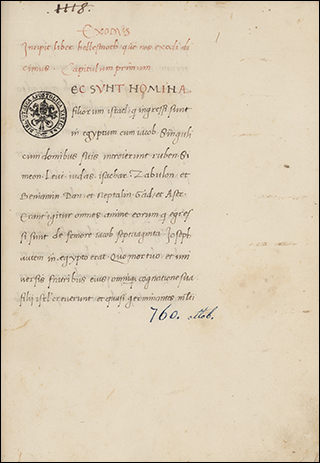 1118.
Exodus
Incipit liber hellesmoth que nos exodi di
cimus. Capitulum primum
EC SVNT NOMINA
filiorum israel, q ingressi sunt
in egyptum cum iacob. Singuli
cum domibus suis introierunt ruben Si
meon. Levi iudas, isachar. Zabulon et
Beniamin. Dan et Neptalin. Gad, et Aser.
Erant igitur omnes anime eorum q egres
si sunt de femore iacob septuaginta. Joseph
autem in egypto erat. Quo mortuo et uni
versis fratribus eius, omniq cognatione sua
filij isrl creverunt, et quasi germinantes mlti
760. ottob.